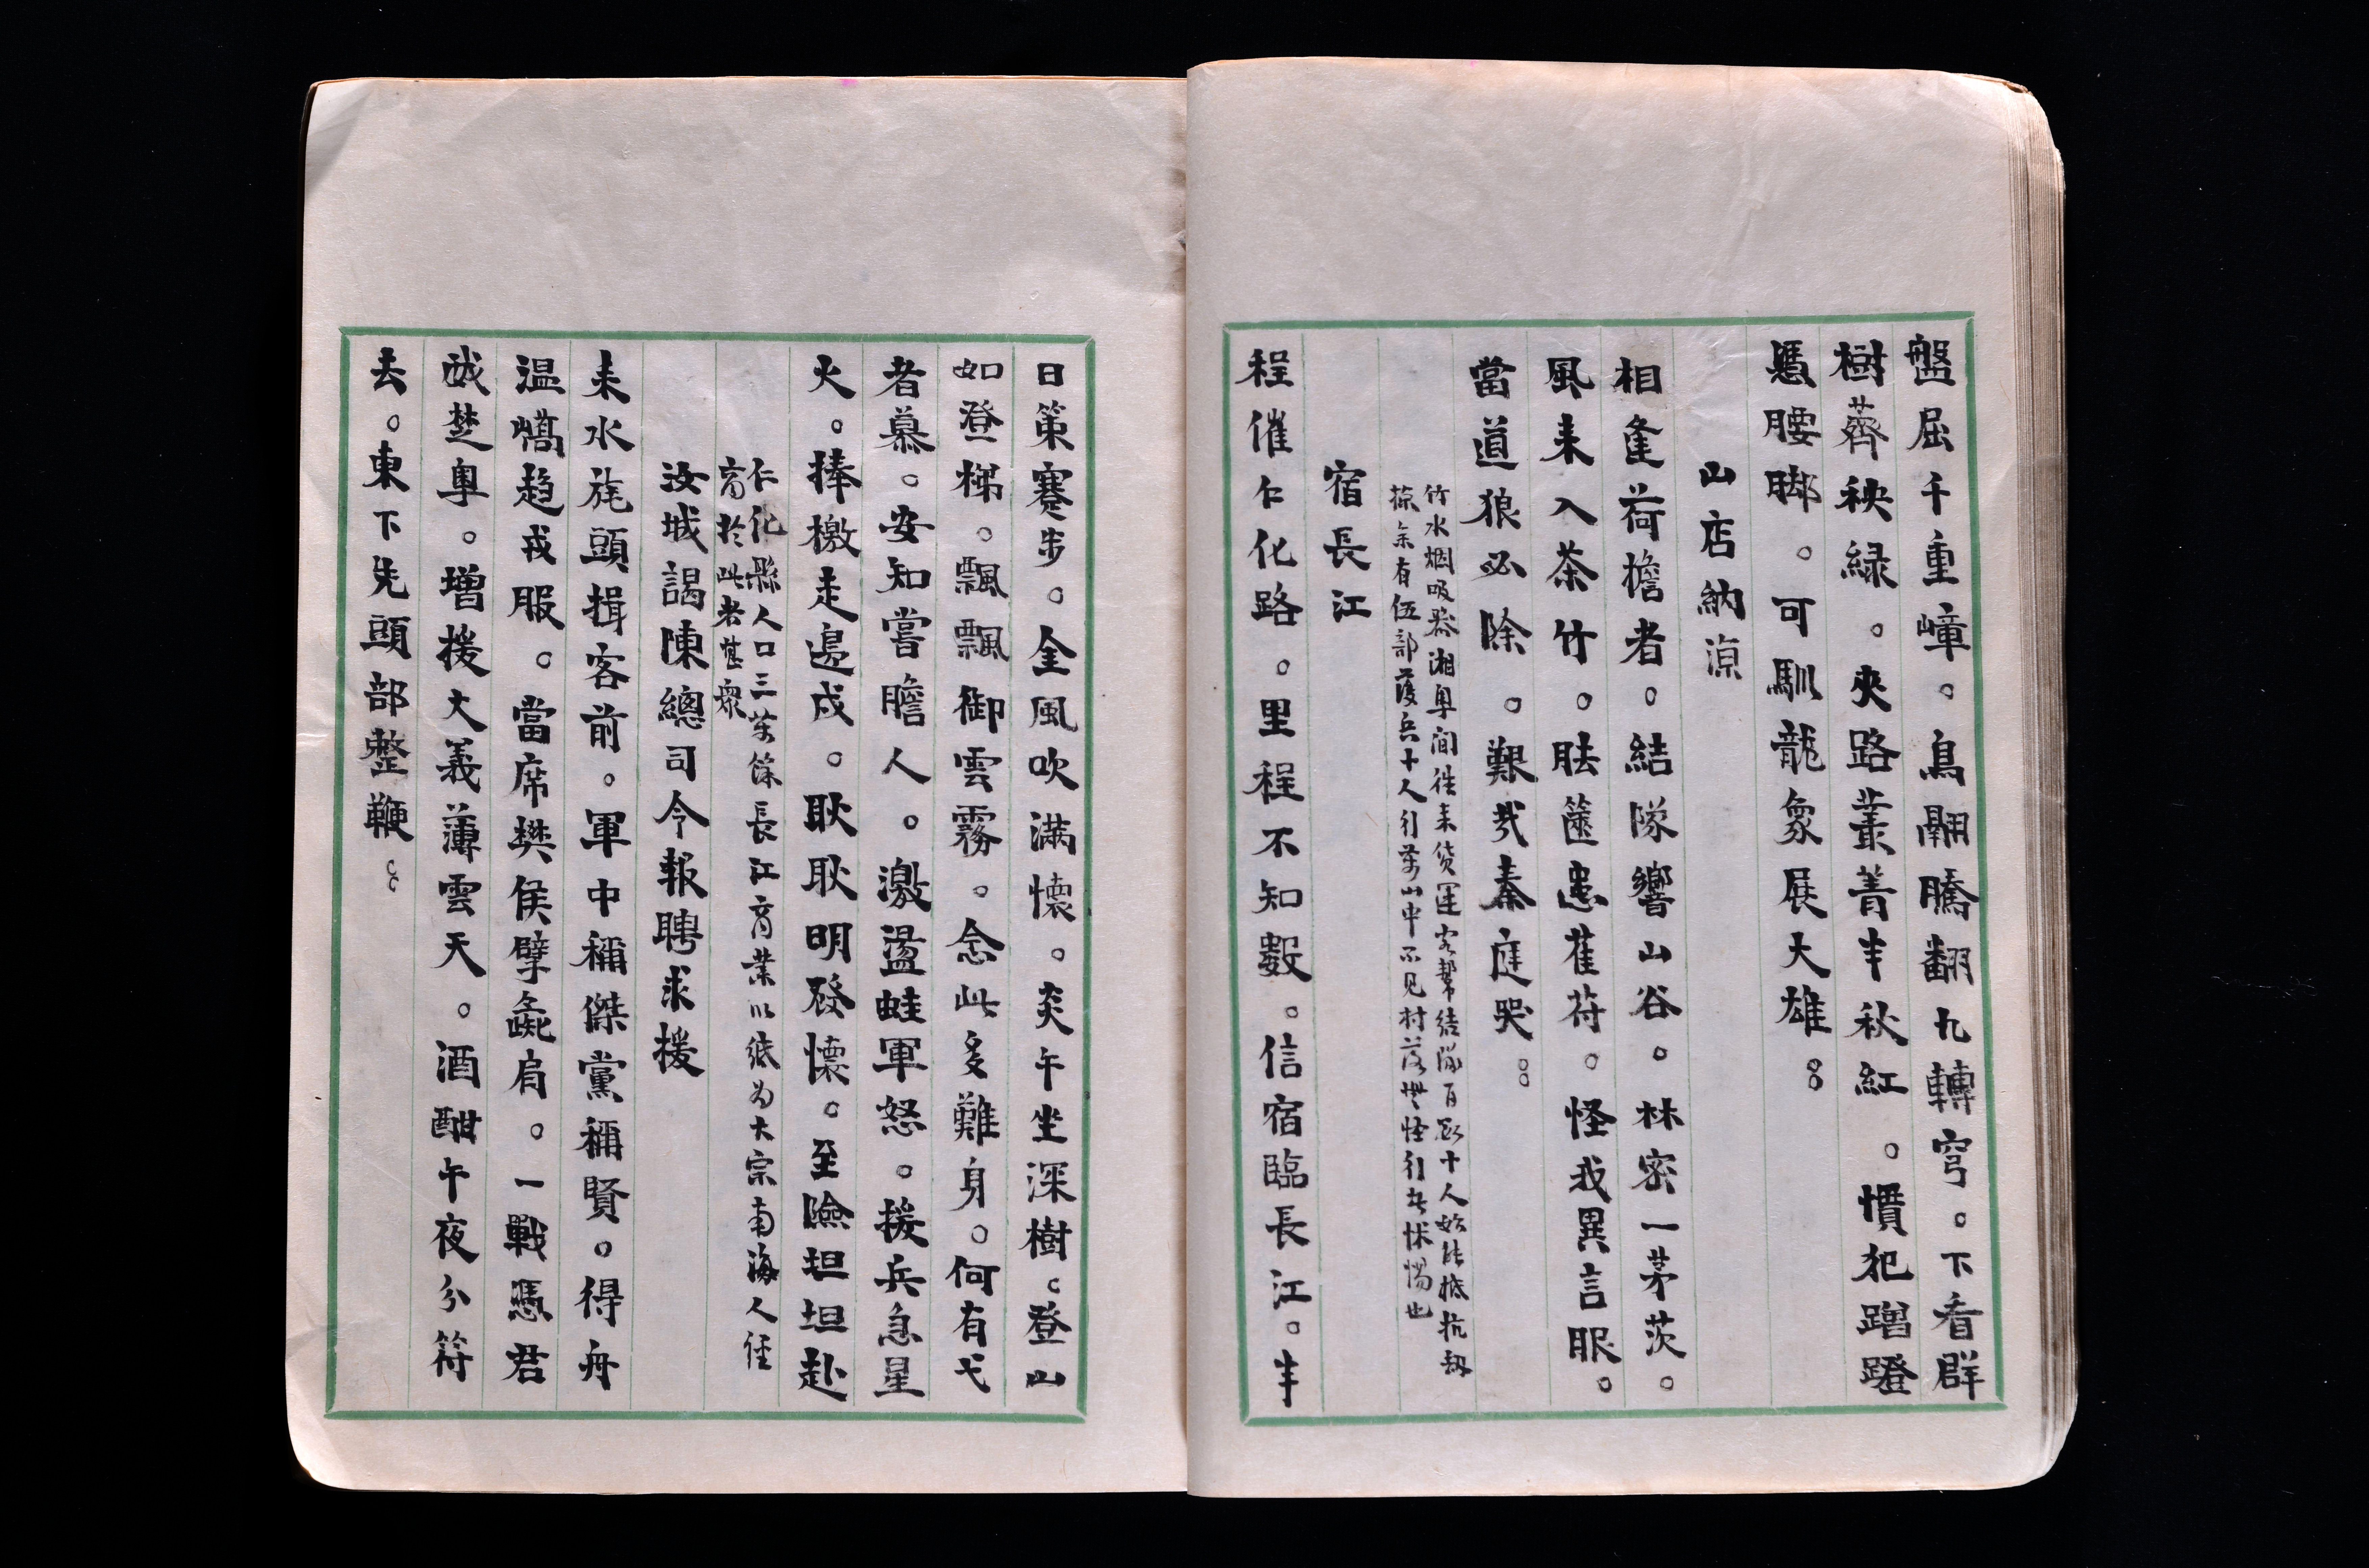 盤屈千重嶂。鳥翮騰翻九轉穹。下看群
樹薺秧綠。夾路叢菁半秋紅。慣犯蹭蹬
憑腰脚。可馴龍象展大雄。
山店納涼
相逢荷擔者。結隊響山谷。林密一茅茨。
風来入茶竹。胠篋患萑苻。怪我異言服。
當道狼必除。艱哉秦庭哭。
竹水烟吸器湘粤间往来货运客幫结隊百数十人始能抵抗刼
掠余有伍部護兵十人引導山中不见村落 怪引者怵惕也
宿長江
程催仁化路。里程不知數。信宿臨長江。半
日策蹇步。金風吹滿懷。炎午坐深樹。登山
如登梯。飄飄御雲霧。念此多難身。何有弋
者慕。安知嘗膽人。激盪蛙軍怒。援兵急星
火。捧檄走邊戍。耿耿明發懷。至險坦坦赴
仁化縣人口三萬餘長江商業以紙为大宗南海人經
商於此者甚衆
汝城謁陳總司令報聘求援
耒水旄頭揖客前。軍中稱傑黨稱賢。得舟
溫嶠趋戎服。當席樊侯擘彘肩。一戰憑君
成楚粤。增援大義薄雲天。酒酣午夜分符
去。東下先頭部整鞭。